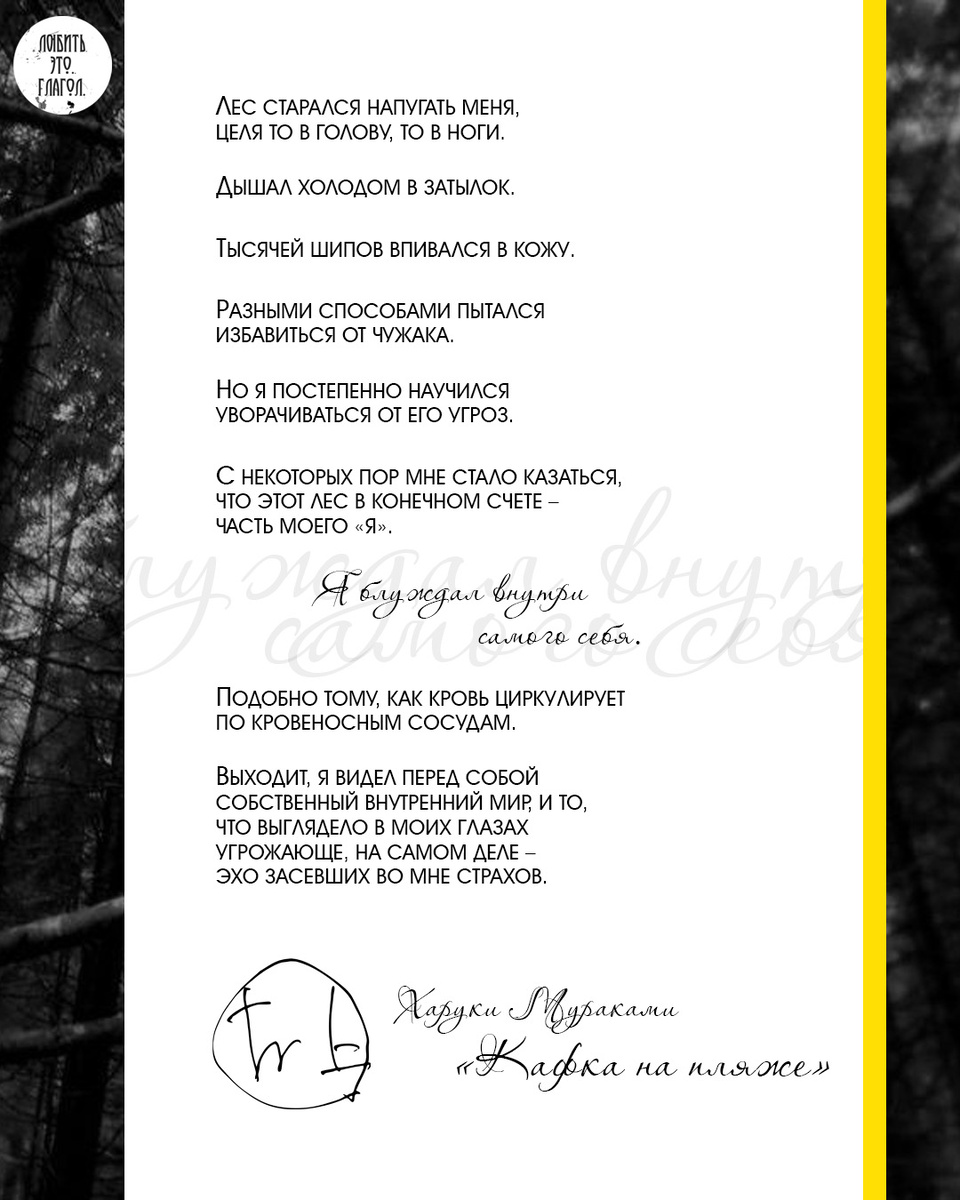 ЛЮБИТЬ
ЭТО
ГЛАГОЛ.
Лес старался напугать меня,
целя то в голову, то в ноги.
Дышал холодом в затылок.
Тысячей шипов впивался в кожу.
Разными способами пытался
избавиться от чужака.
Но я постепенно научился
уворачиваться от его угроз.
С некоторых пор мне стало казаться,
что этот лес в конечном счете –
часть моего «я».
Я блуждал внутри
самого себя.
Подобно тому, как кровь циркулирует
по кровеносным сосудам.
Выходит, я видел перед собой
собственный внутренний мир, и то,
что выглядело в моих глазах
угрожающе, на самом деле –
эхо засевших во мне страхов.
Харуки Мураками
«Кафка на пляже»